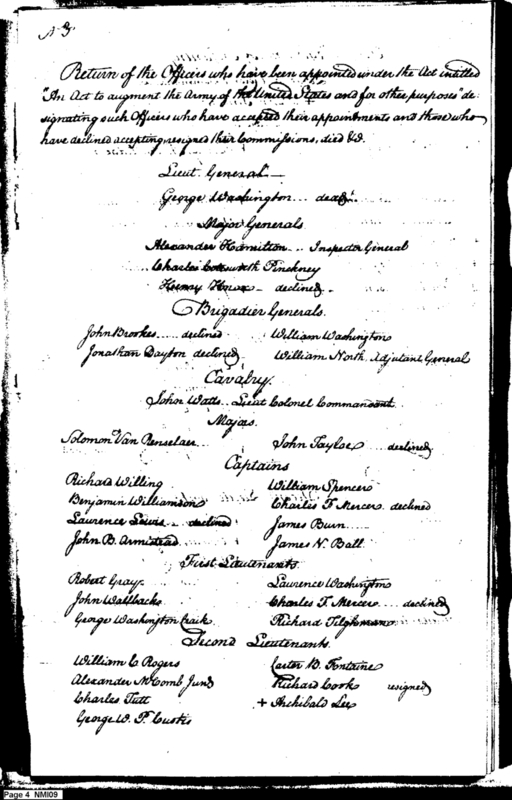 N 3.
Return of the Officers who have been appointed under the Act intitled
"An Act to augment the Army of the United States and for other purposes" de-
signating such Officers who have accepted their appointments and those who
have declined accepting, resigned their Commissions, died &c.
Lieut General
George Washington ... dead
Major Generals
Alexander Hamilton ... Inspector General
Charles Cotesworth Pinckney
Henry Knox - declined
Brigadier Generals.
John Brookes ... declined William Washington
Jonathan Dayton declined William North Adjutant General
Cavalry.
John Watts .. Lieut Colonel Commandant
Majors.
Solomon Van Renselaer ... John Tayloe ... declined
Captains
Richard Willing William Spencer
Benjamin Williamson Charles F Mercer declined
Laurence Lewis .. declined James Burn ...
John B. Armistead James N. Ball
First Lieutenants.
Robert Gray. Laurence Washington
John Walbach Charles F. Mercer ... declined
George Washington Craik Richard Tilghman
Second Lieutenants.
William C Rogers Carter B. Fontaine
Alexander McComb Junr Richard Cook resigned
Charles Tutt + Archibald Lee
George W. P. Custis
Page 4 NMI09